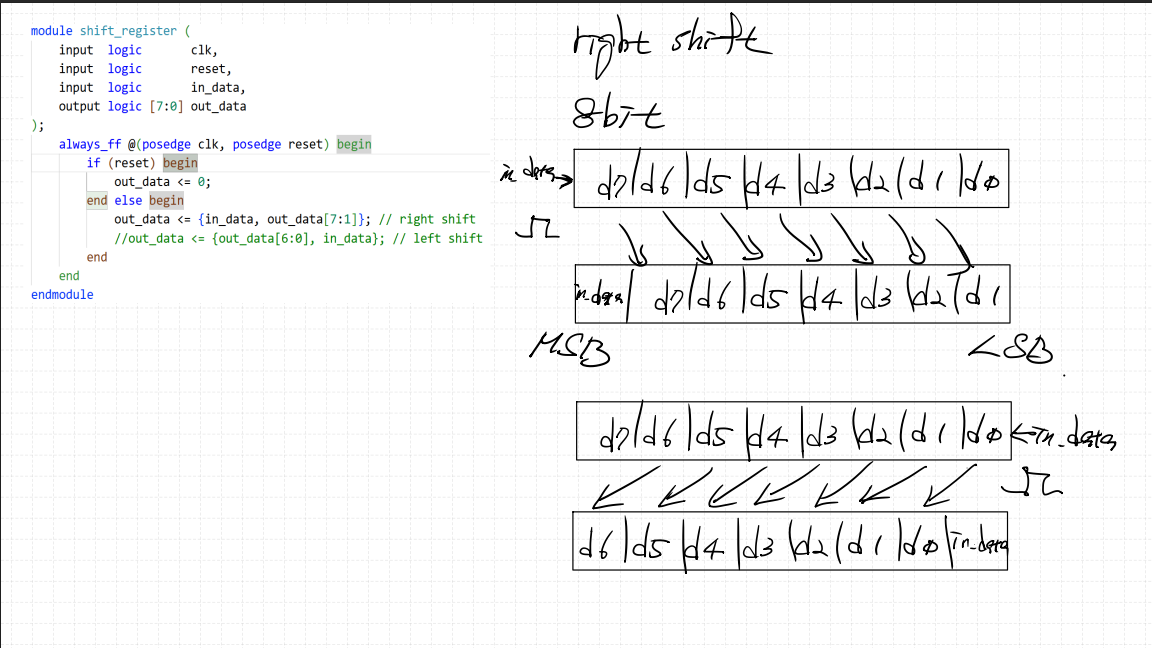 module shift_register (
input logic clk,
input logic reset,
input logic in_data,
output logic [7:0] out_data
);
always_ff @(posedge clk, posedge reset) begin
if (reset) begin
out_data <= 0;
end else begin
out_data <= {in_data, out_data[7:1]}; // right shift
//out_data <= {out_data[6:0], in_data}; // left shift
end
end
endmodule
right shift
8bit
in_data d7 d6 d5 d4 d3 d2 d1 d0
in_data d7 d6 d5 d4 d3 d2 d1
MSB LSB
d7 d6 d5 d4 d3 d2 d1 d0 in_data
d6 d5 d4 d3 d2 d1 d0 in_data